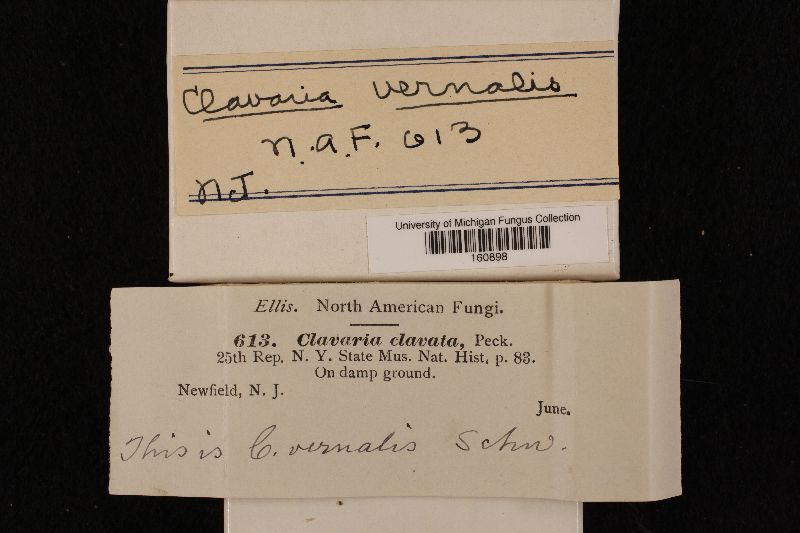 Clavaria vernalis
N.A.F. 613
N.J.
University of Michigan Fungus Collection
160898
Ellis. North American Fungi.
613. Clavaria clavata, Peck.
25th Rep. N. Y. State Mus. Nat. Hist, p. 83.
On damp ground.
Newfield, N. J.
June.
This is C. vernalis Schw.